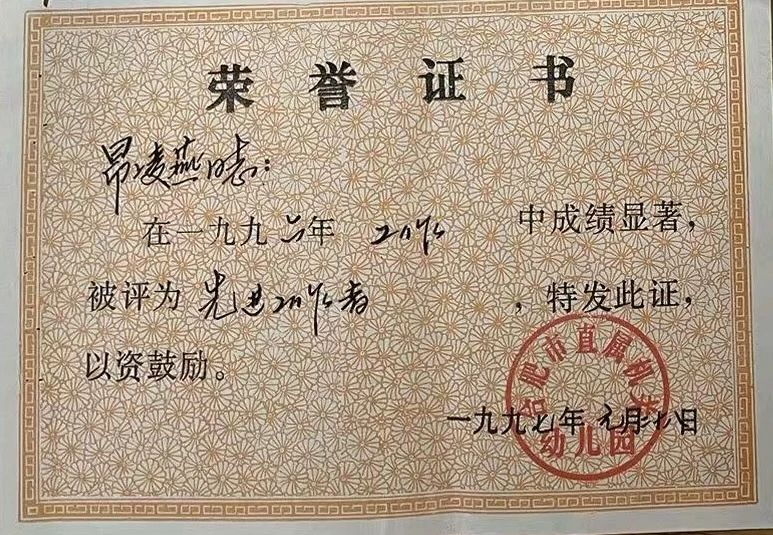 荣誉证书
昂凌燕同志：
在一九九六年 工作 中成绩显著，
被评为 先进工作者 ，特发此证，
以资鼓励。
合肥市直属机关
幼儿园
一九九七年元月十八日